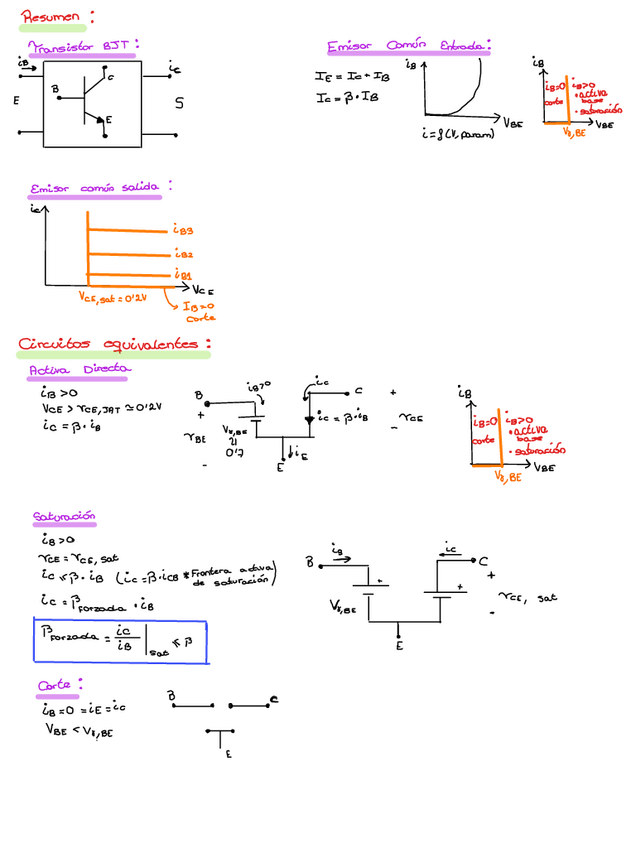 Resumen:
Transistor BJT:
iB
B
C
E
iC
E
S
Emisor Común Entrada:
IE = IC + IB
IC = β · IB
iB
VBE
i = f(V, param)
iB
iB=0
corte
iB>0
• activa
base
• saturación
VBE
Vγ,BE
Emisor común salida:
iC
iB3
iB2
iB1
VCE
VCE,sat = 0'2V
IB=0
corte
Circuitos equivalentes:
Activa Directa
iB > 0
VCE > VCE,SAT ≃ 0'2V
iC = β · iB
B
iB>0
iC
C
+
vBE
-
Vγ,BE
0'7
iC = β · iB
+
- vCE
E
iE
iB
iB=0
corte
iB>0
• activa
base
• saturación
VBE
Vγ,BE
Saturación
iB > 0
vCE = vCE, sat
iC < β · iB (iC = β · iCB * Frontera activa
de saturación)
iC = βforzada · iB
βforzada = iC/iB |sat < β
B
iB
iC
C
+
+
Vγ,BE
+
vCE, sat
-
E
Corte:
iB = 0 = iE = iC
VBE < Vγ,BE
B
C
E